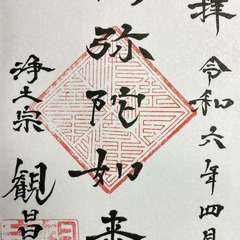 拝
令和六年四月
弥陀如来
浄土宗
観昌